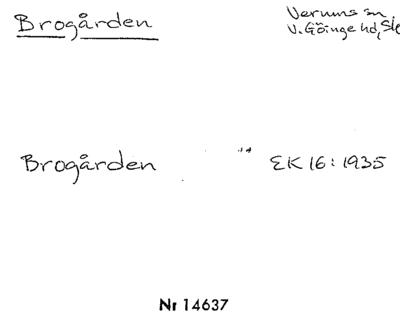 Brogården
Verums sn
V. Göinge hd, Sk
Brogården " EK 16: 1935
Nr 14637